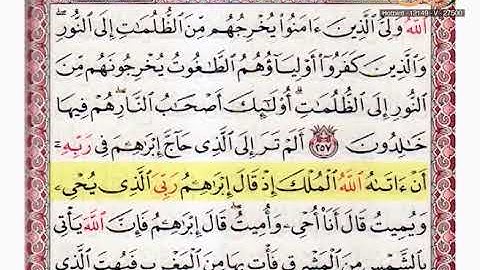 Hotbird - 12149 - V - 27500
ٱللَّهُ وَلِىُّ ٱلَّذِينَ ءَامَنُوا۟ يُخْرِجُهُم مِّنَ ٱلظُّلُمَٰتِ إِلَى ٱلنُّورِ ۖ
وَٱلَّذِينَ كَفَرُوٓا۟ أَوْلِيَآؤُهُمُ ٱلطَّٰغُوتُ يُخْرِجُونَهُم مِّنَ
ٱلنُّورِ إِلَى ٱلظُّلُمَٰتِ ۗ أُو۟لَٰٓئِكَ أَصْحَٰبُ ٱلنَّارِ ۖ هُمْ فِيهَا
خَٰلِدُونَ ٢٥٧ أَلَمْ تَرَ إِلَى ٱلَّذِى حَآجَّ إِبْرَٰهِۦمَ فِى رَبِّهِۦٓ
أَنْ ءَاتَىٰهُ ٱللَّهُ ٱلْمُلْكَ إِذْ قَالَ إِبْرَٰهِۦمُ رَبِّىَ ٱلَّذِى يُحْىِۦ
وَيُمِيتُ قَالَ أَنَا۠ أُحْىِۦ وَأُمِيتُ ۖ قَالَ إِبْرَٰهِۦمُ فَإِنَّ ٱللَّهَ يَأْتِى
بِٱلشَّمْسِ مِنَ ٱلْمَشْرِقِ فَأْتِ بِهَا مِنَ ٱلْمَغْرِبِ فَبُهِتَ ٱلَّذِى